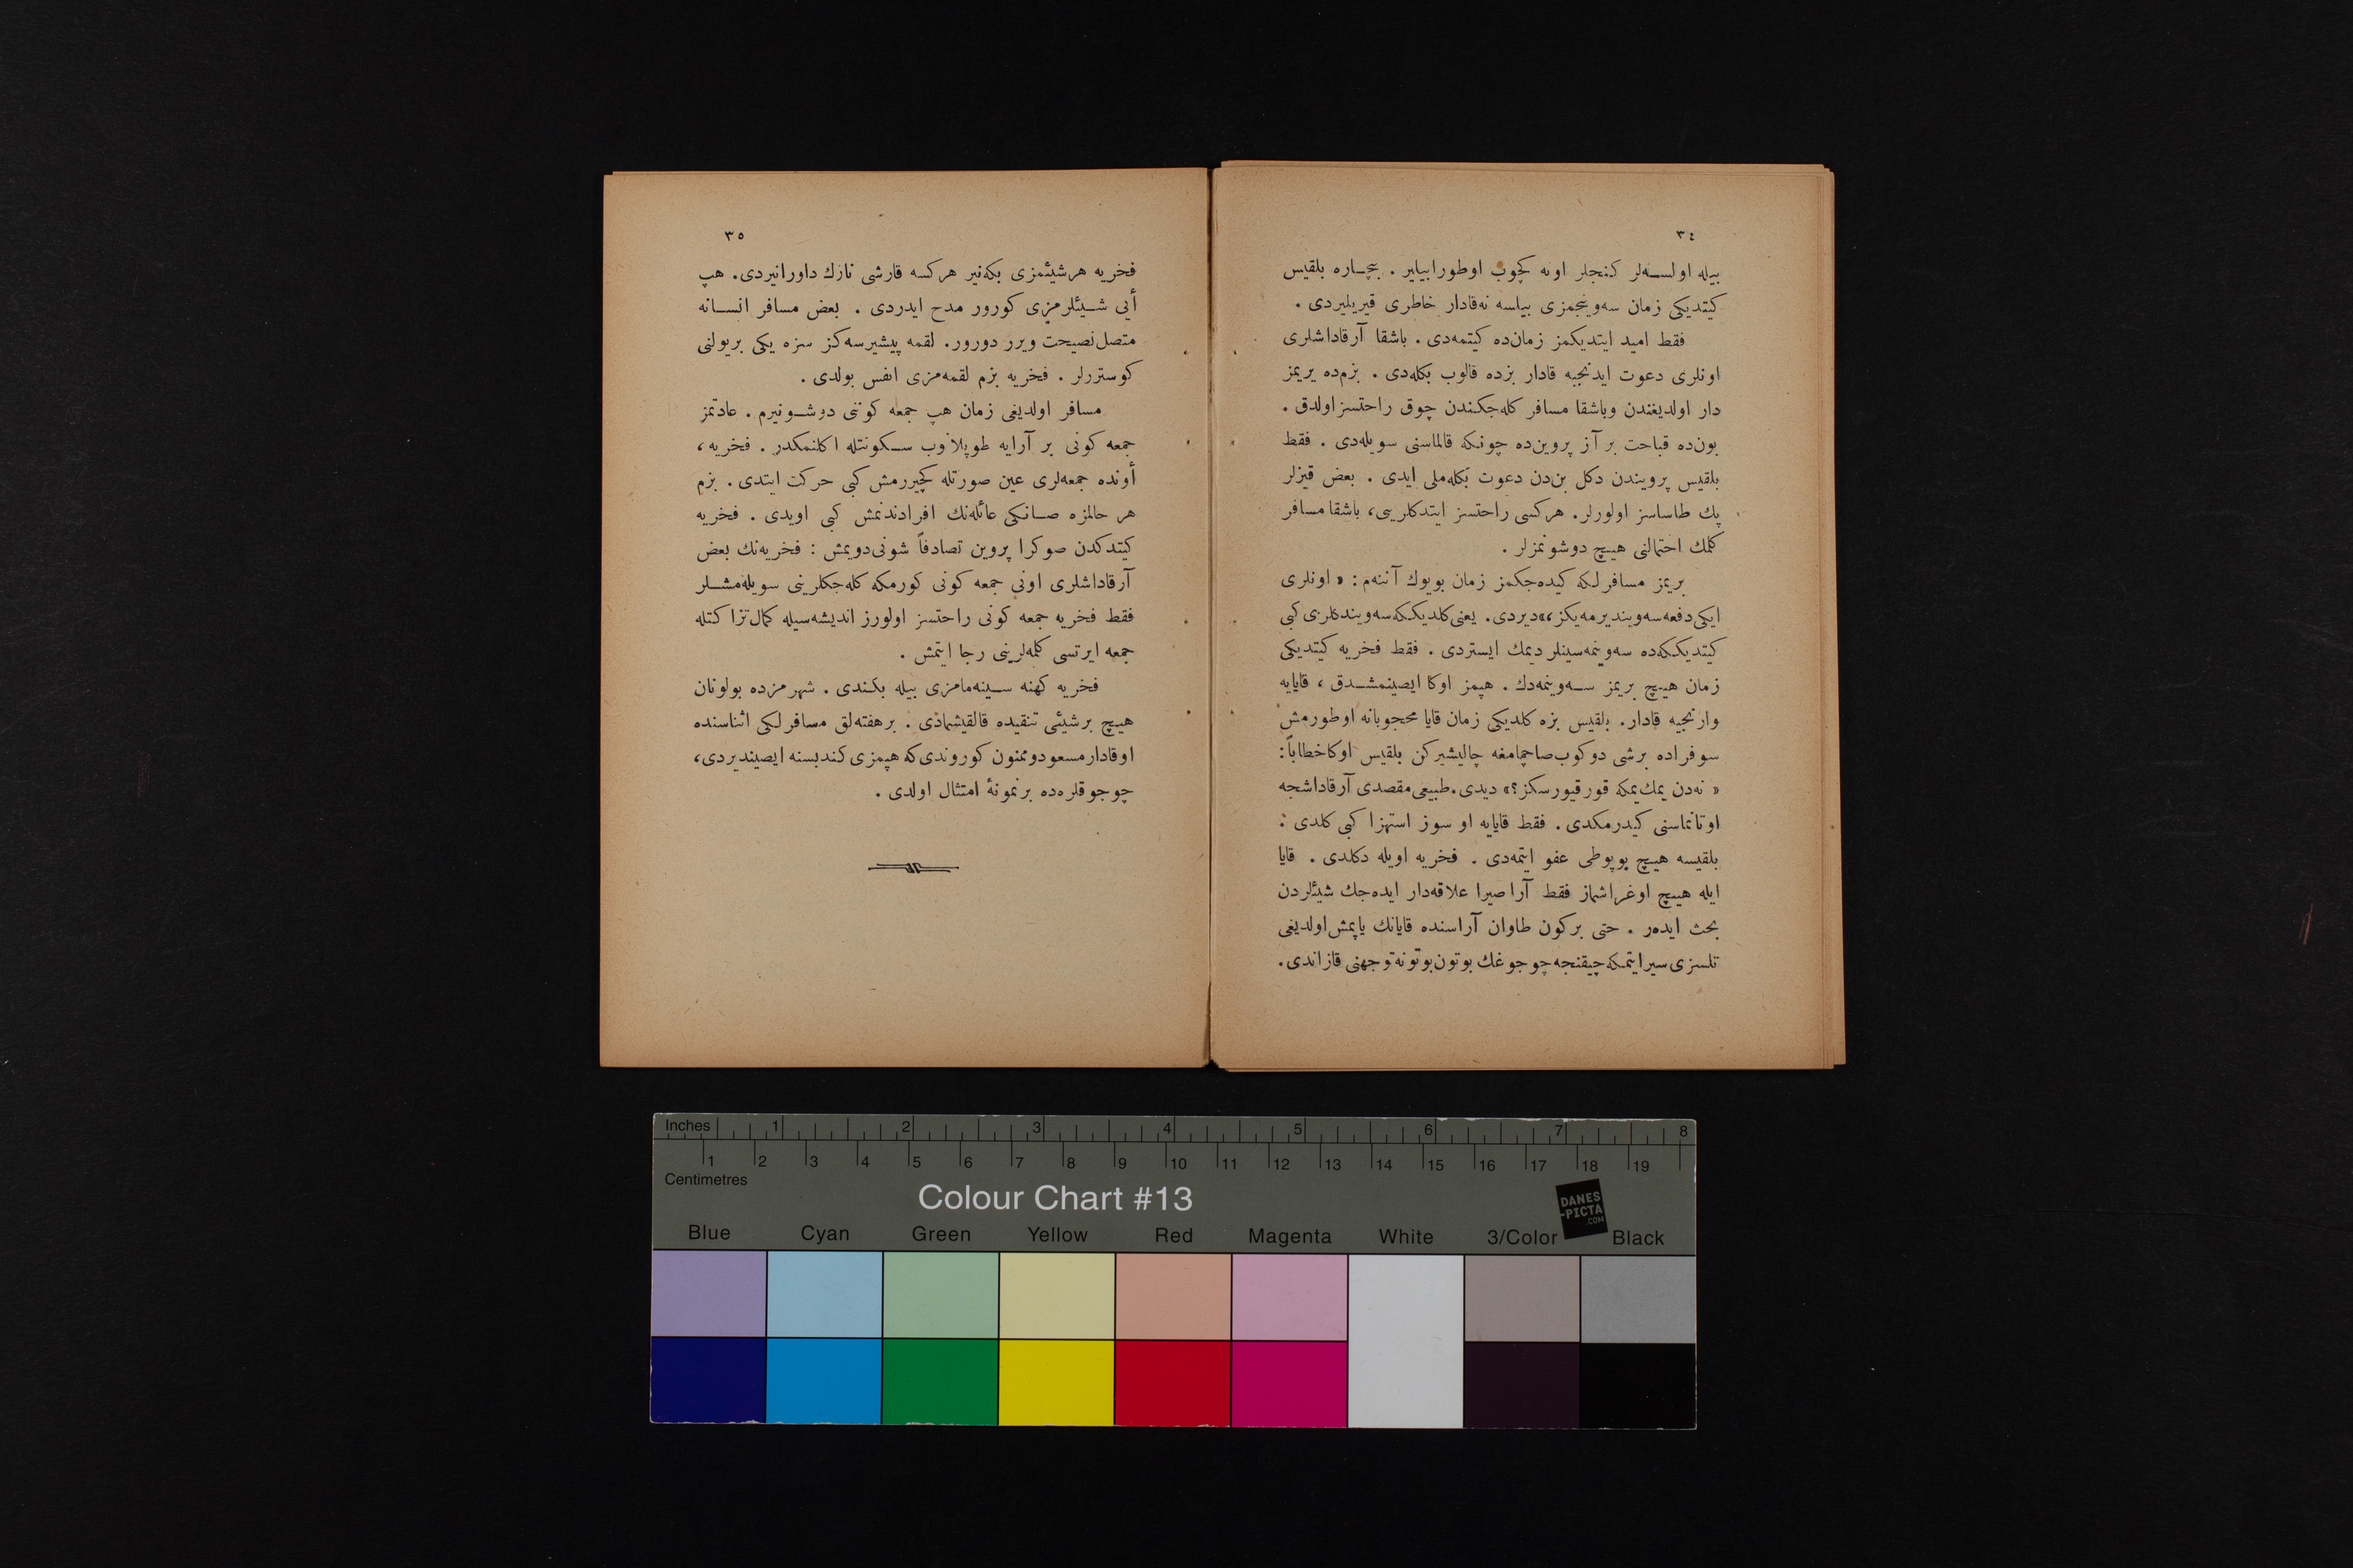 ٣٤
بیله اولسه‌لر كنجلر اونه كچوب اوطورابیلیر . بیچاره بلقیس
كیتدیكی زمان سه‌وینجمزی بیلسه نه‌قادار خاطری قیریلیردی .
فقط امید ایتدیكمز زمان‌ده كیتمه‌دی . باشقا آرقاداشلری
اونلری دعوت ایدنجیه قادار بزده قالوب بكله‌دی . بزم‌ده یریمز
دار اولدیغندن وباشقا مسافر كله‌جكندن چوق راحتسز اولدق .
بون‌ده قباحت بر آز پروین‌ده چونكه قالماسنی سویله‌دی . فقط
بلقیس پرویندن دكل بن‌دن دعوت بكله‌ملی ایدی . بعض قیزلر
پك طاساسز اولورلر. هركسی راحتسز ایتدكلرینی، باشقا مسافر
كلمك احتمالنی هیچ دوشونمزلر .
بریمز مسافرلكه كیده‌جكمز زمان بویوك آننه‌م : « اونلری
ایكی دفعه سه‌ویندیرمه‌یكز،» دیردی. یعنی كلدیككه سه‌ویندكلری كبی
كیتدیككه‌ده سه‌وینمه‌سینلر دیمك ایستردی . فقط فخریه كیتدیكی
زمان هیچ بریمز سه‌وینمه‌دك . هپمز اوكا ایصینمشدق ، قایایه
وارنجیه قادار. بلقیس بزه كلدیكی زمان قایا محجوبانه اوطورمش
سوفراده برشی دوكوب‌صاچمامغه چالیشیركن بلقیس اوكا خطاباً :
« نه‌دن یمك‌یمكه قورقیورسكز؟» دیدی. طبیعی مقصدی آرقاداشجه
اوتانماسنی كیدرمكدی . فقط قایایه او سوز استهزا كبی كلدی :
بلقیسه هیچ بوپوطی عفو ایتمه‌دی . فخریه اویله دكلدی . قایا
ایله هیچ اوغراشماز فقط آرا صیرا علاقه‌دار ایده‌جك شیئلردن
بحث ایده‌ر . حتی بركون طاوان آراسنده قایانك یاپمش اولدیغی
تلسزی سیرایتمكه چیقنجه چوجوغك بوتون‌بوتونه توجهنی قازاندی.
٣٥
فخریه هرشیئمزی بكه‌نیر هركسه قارشی نازك داورانیردی. هپ
أیی شیئلرمزی كورور مدح ایدردی . بعض مسافر انسانه
متصل نصیحت ویرر دورور. لقمه پیشیرسه‌كز سزه یكی بریولنی
كوسترر‌لر . فخریه بزم لقمه‌مزی انفس بولدی .
مسافر اولدیغی زمان هپ جمعه كوننی دوشونیرم . عادتمز
جمعه كونی بر آرایه طوپلانوب سكونتله اكلنمكدر . فخریه ،
أونده جمعه‌لری عین صورتله كچیررمش كبی حركت ایتدی . بزم
هر حالمزه صانكی عائله‌نك افرادندنمش كبی اویدی . فخریه
كیتدكدن صوكرا پروین تصادفاً شونی‌دویمش : فخریه‌نك بعض
آرقاداشلری اونی جمعه كونی كورمكه كله‌جكلرینی سویله‌مشلر
فقط فخریه جمعه كونی راحتسز اولورز اندیشه‌سیله كمال‌نزاكتله
جمعه ایرتسی كلمه‌لرینی رجا ایتمش .
فخریه كهنه سینه‌مامزی بیله بكندی . شهرمزده بولونان
هیچ برشیئی تنقیده قالقیشمادی . برهفته‌لق مسافرلكی اثناسنده
اوقادار مسعودوممنون كوروندی‌كه هپمزی كندیسنه ایصیندیردی،
چوجوقلره‌ده برنمونهٔ امتثال اولدی .
Inches 1 2 3 4 5 6 7 8
1 2 3 4 5 6 7 8 9 10 11 12 13 14 15 16 17 18 19
Centimetres
Colour Chart #13
DANES
-PICTA
.COM
Blue Cyan Green Yellow Red Magenta White 3/Color Black